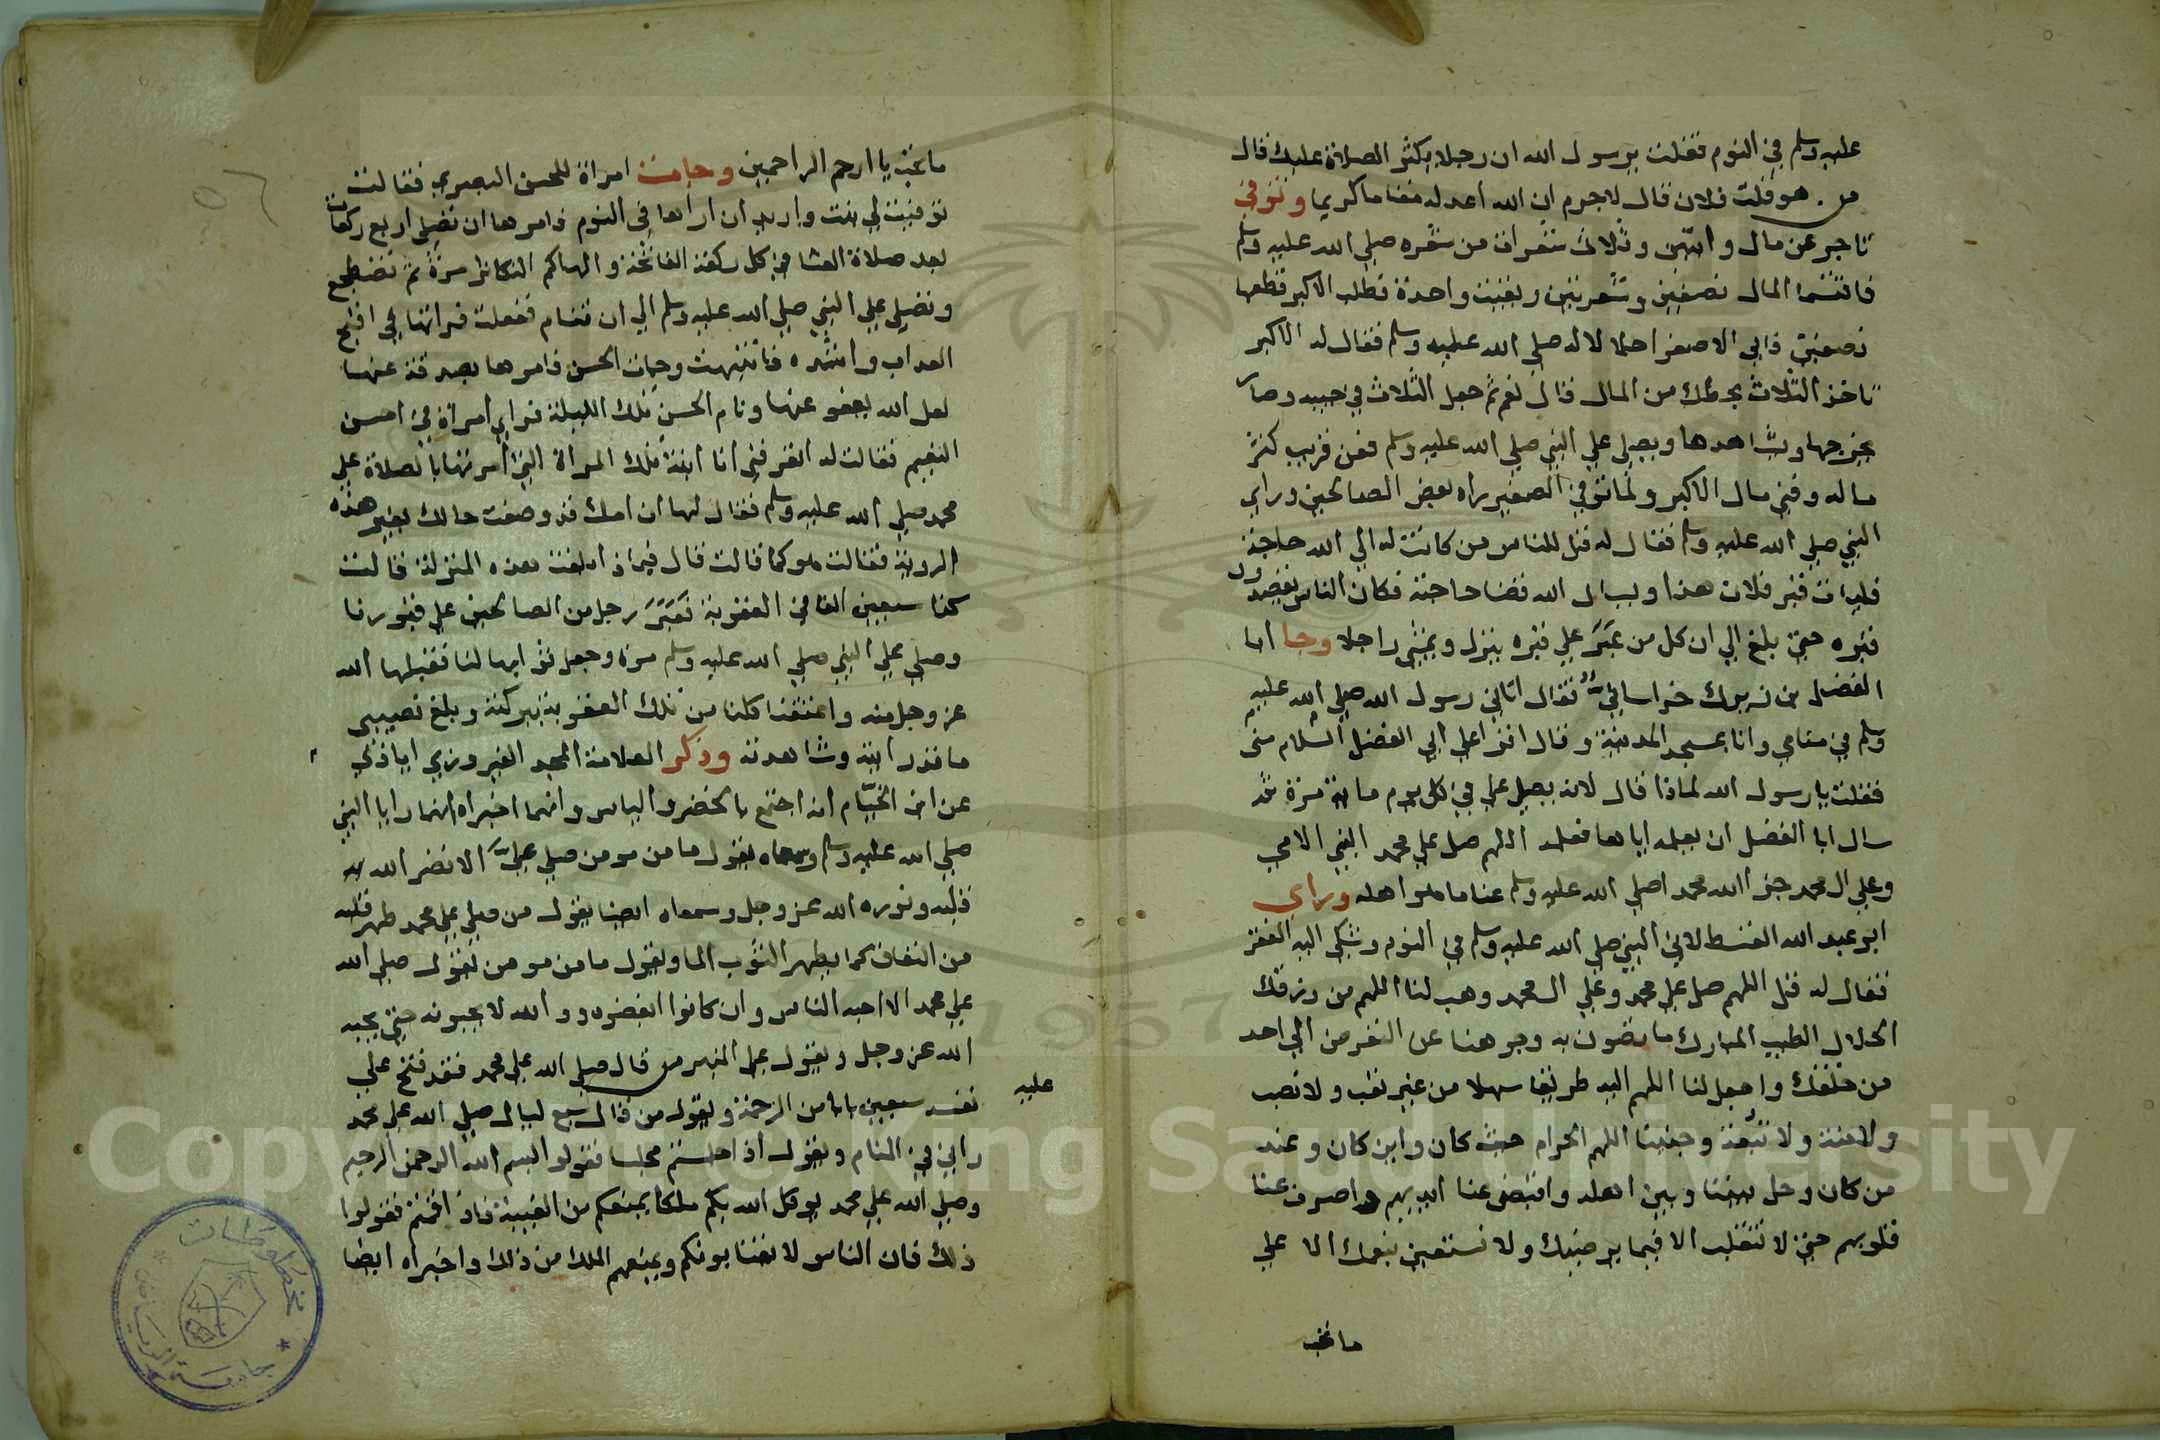 عليه وسلم في النوم فقلت يرسول الله ان رجلا يكثر الصلاة عليك قال
من هو قلت فلان قال لاجرم ان الله اعد له مقاما كريما وتوفي
تاجر عن مال وابنين وثلاث شعرات من شعره صلي الله عليه وسلم
فاقتسما المال نصفين وشعرتين وبقيت واحدة فطلب الاكبر قطعها
نصفين فابي الاصغر اجلالا له صلي الله عليه وسلم فقال له الاكبر
تاخذ الثلاث بحظك من المال قال نعم ثم جعل الثلاث في جيبه وصار
يخرجها وشاهدها ويصلي علي النبي صلي الله عليه وسلم فعن قريب كثر
ماله وفني مال الاكبر ولما توفي الصغير راه بعض الصالحين وراي
النبي صلي الله عليه وسلم فقال له قل للناس من كانت له الي الله حاجة
فليات قبر فلان هذا ويسال الله قضا حاجته فكان الناس يقصدون
قبره حتي بلغ الي ان كل من عبر علي قبره ينزل ويمشي راجلا وجا ابا
الفضل بن زيرك خراساني فقال اتاني رسول الله صلي الله عليه
وسلم في منامي وانا بمسجد المدينة وقال اقرا علي ابي الفضل السلام مني
فقلت يا رسول الله لماذا قال لانه يصلي علي في كل يوم مائة مرة ثم
سال ابا الفضل ان يعلمه اياها فعلمه اللهم صل علي محمد النبي الامي
وعلي ال محمد جزا الله محمدا صلي الله عليه وسلم عنا ما هو اهله وراي
ابو عبد الله القسطلاني النبي صلي الله عليه وسلم في النوم وشكي اليه الفقر
فقال له قل اللهم صل علي محمد وعلي ال محمد وهب لنا اللهم من رزقك
الحلال الطيب المبارك ما تصون به وجوهنا عن التعرض الي احد
من خلقك واجعل لنا اللهم اليه طريقا سهلا من غير تعب ولا نصب
ولا منة ولا تبعة وجنبنا اللهم الحرام حيث كان واين كان وعند
من كان وحل بيننا وبين اهله واقبض عنا ايديهم واصرف عنا
قلوبهم حتي لا نتقلب الا فيما يرضيك ولا نستعين بنعمك الا علي
ما تحب
ما تحب يا ارحم الراحمين وجات امراة للحسن البصري فقالت
توفيت لي بنت واريد ان اراها في النوم فامرها ان تصلي اربع ركعات
بعد صلاة العشا في كل ركعة الفاتحة والهاكم التكاثر مرة ثم تضطجع
وتصلي علي النبي صلي الله عليه وسلم الي ان تنام ففعلت فراتها في اقبح
العذاب واشده فانتبهت وجات الحسن فامرها بصدقة عنها
لعل الله يعفو عنها ونام الحسن تلك الليلة فراي امراة في احسن
النعيم فقالت له اتعرفني انا ابنة تلك المراة التي امرتها بالصلاة علي
محمد صلي الله عليه وسلم فقال لها ان امك قد وصفت حالك بغير هذه
الروية فقالت هو كما قالت قال فبماذا بلغت هذه المنزلة قالت
كنا سبعين الفا في العقوبة فعبر رجل من الصالحين علي قبورنا
وصلي علي النبي صلي الله عليه وسلم مرة وجعل ثوابها لنا فقبلها الله
عز وجل منه واعتقنا كلنا من تلك العقوبة ببركته وبلغ نصيبي
ما قد رايته وشاهدته وذكر العلامة المجد الفيروزي اباذي
عن ابن الخيام انه اجتمع بالخضر والياس وانهما اخبراه انهما رايا النبي
صلي الله عليه وسلم وسمعاه يقول ما من مومن صلي علي الا نضر الله به
قلبه ونوره الله عز وجل وسمعاه ايضا يقول من صلي علي محمد طهر قلبه
من النفاق كما يطهر الثوب الما ويقول ما من مومن يقول صلي الله
علي محمد الا احبه الناس وان كانوا ابغضوه ووالله لا يحبونه حتي يحبه
الله عز وجل ويقول علي المنبر من قال صلي الله علي محمد فقد فتح علي
عليه
نفسه سبعين بابا من الرحمة ويقول من قال سبع ليال صلي الله علي محمد
راني في المنام ويقول اذا جلستم مجلسا فقولوا بسم الله الرحمن الرحيم
وصلي الله علي محمد يوكل الله بكم ملكا يمنعكم من الغيبة فاذا قمتم فقولوا
ذلك فان الناس لا يغتابونكم ويمنعهم الملك من ذلك واخبراه ايضا
٥٦
مخطوطات
جامعة الرياض
1957
Copyright © King Saud University